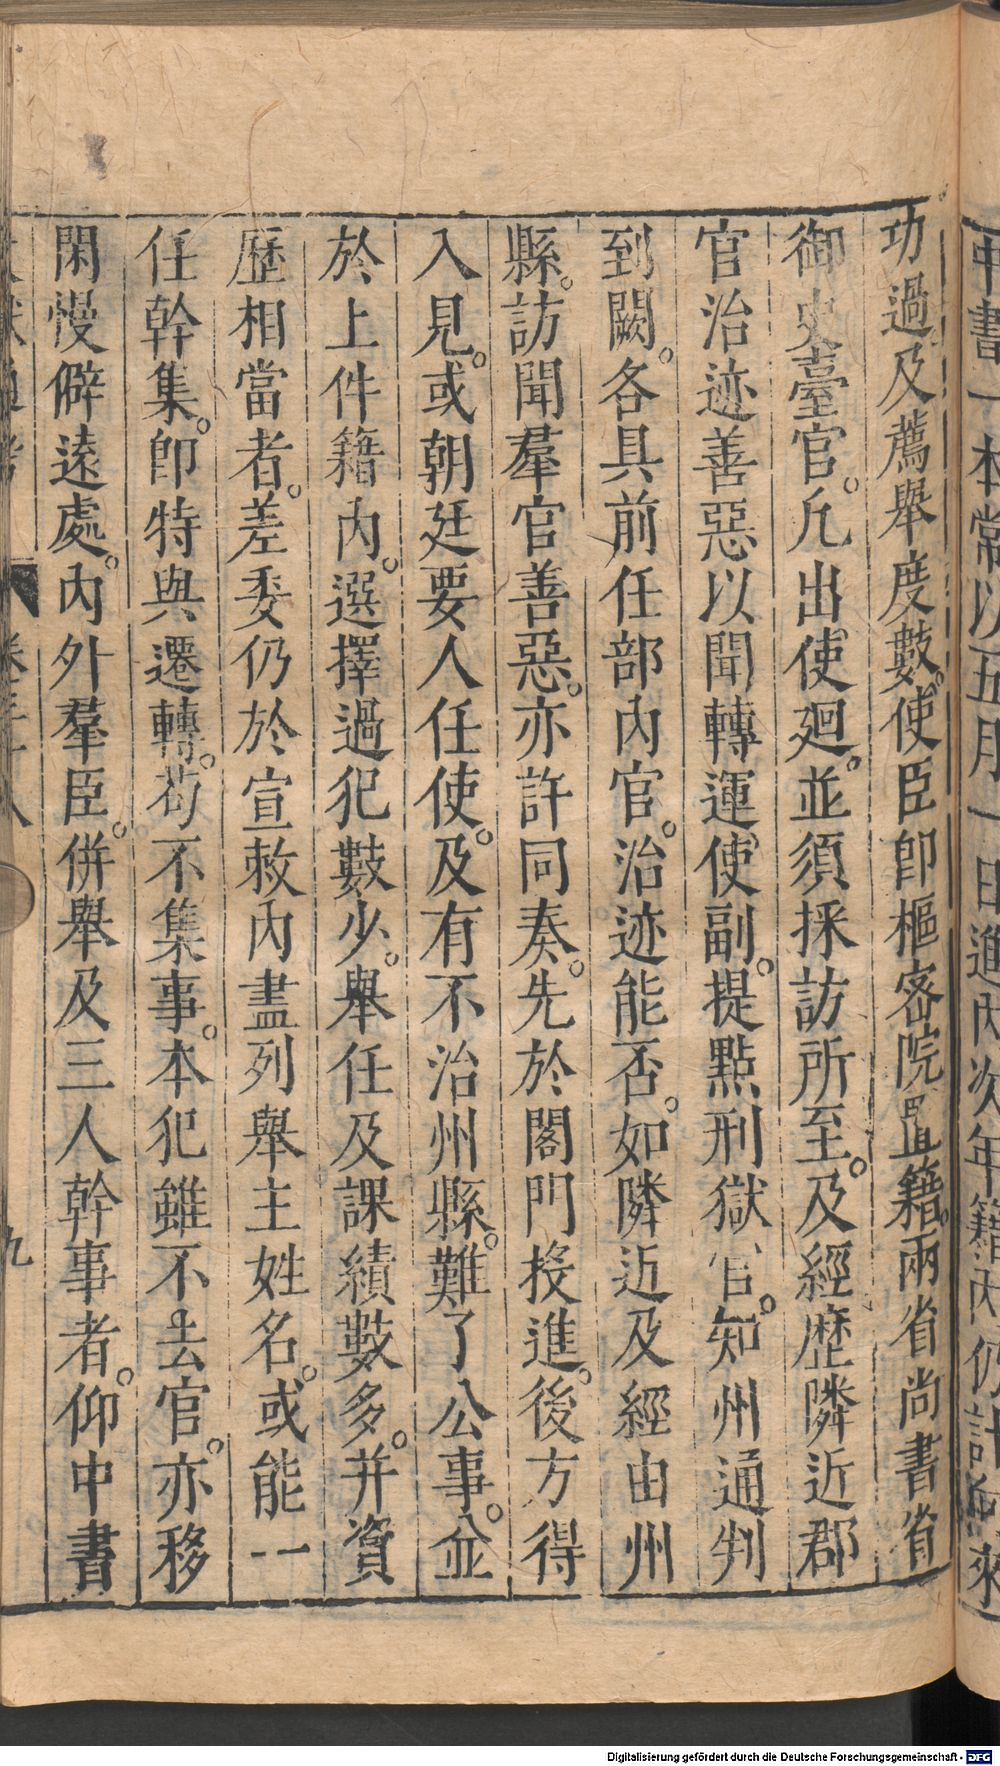 中書一本常以五月一日進內次年籍內仍計
功過及薦舉度數。使臣卽樞密院置籍。兩省尚書省
御史臺官。凡出使廻。並須採訪所至。及經歷隣近郡
官治迹善惡以聞轉運使副。提點刑獄官。知州通判
到闕。各具前任部內官。治迹能否。如隣近及經由州
縣。訪聞羣官善惡。亦許同奏。先於閤門投進。後方得
入見。或朝廷要人任使。及有不治州縣。難了公事。並
於上件籍內。選擇過犯數少。舉任及課績數多。幷資
歷相當者。差委仍於宣敕內盡列舉主姓名。或能一
任幹集。卽特與遷轉。苟不集事。本犯雖不去官。亦移
閑慢僻遠處。內外羣臣。併舉及三人幹事者。仰中書
九
Digitalisierung gefördert durch die Deutsche Forschungsgemeinschaft - DFG